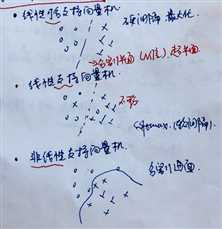 • 线性可分支持向量机.
硬间隔 最大化
→分割平面 (唯一), 超平面
• 线性支持向量机.
不可分
(软间隔).
• 非线性支持向量机.
分割曲面.